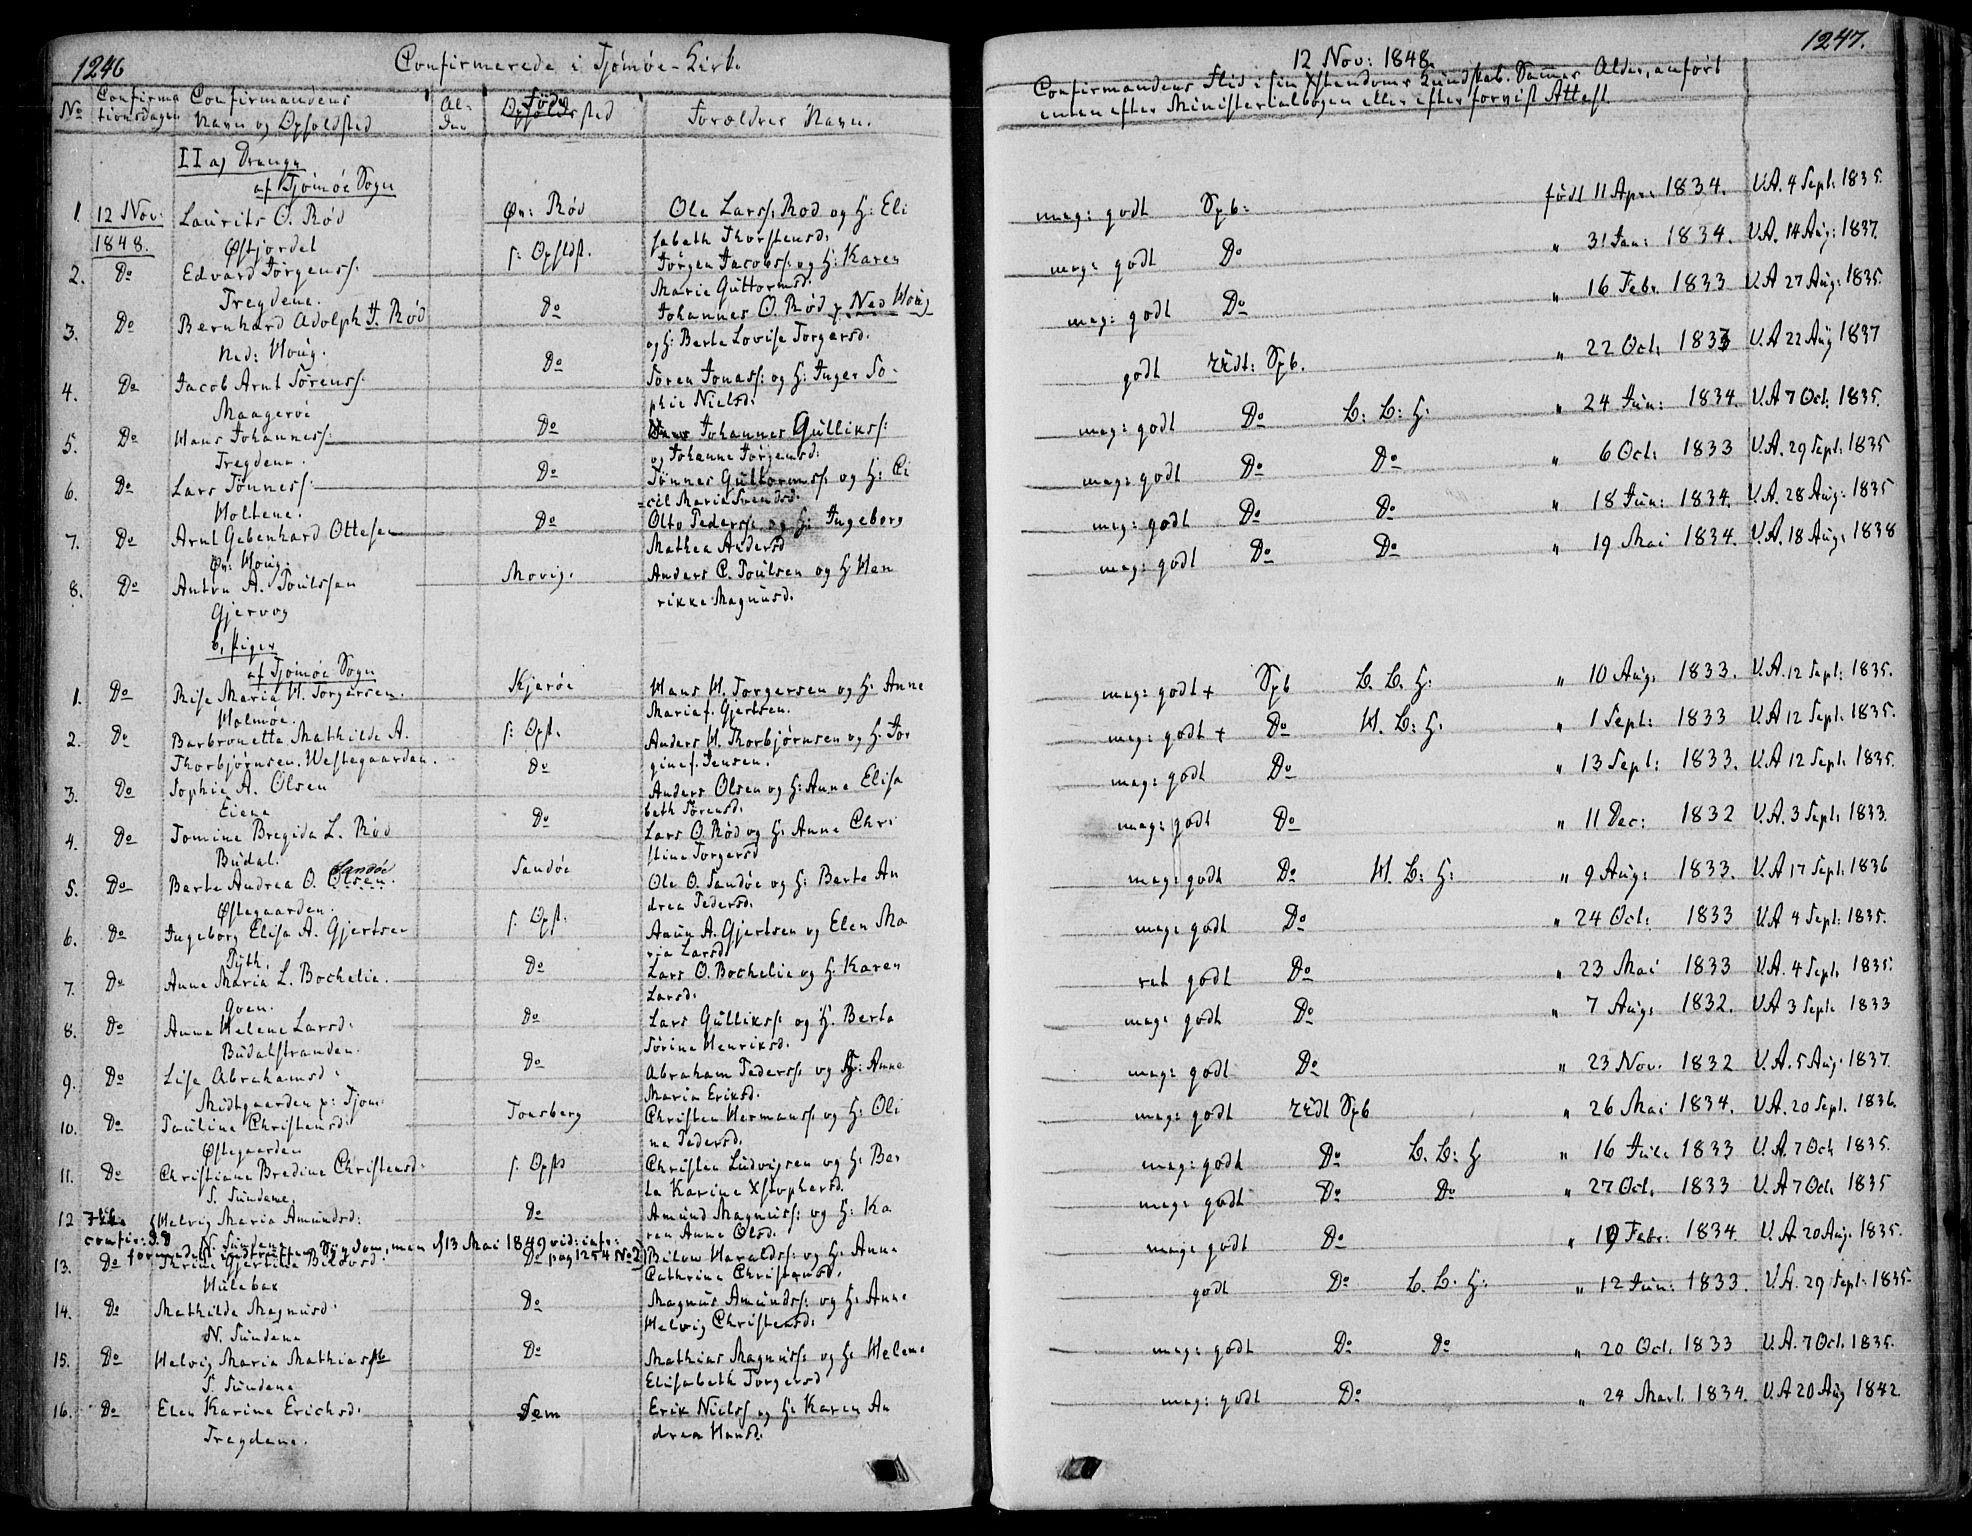 1246
Confirmerede i Tjömöe-Kirke
12 Nov: 1848.
1247.
No
Confirma
tionsdagen
Confirmandens
Navn og Opholdsted
Al-
der
Föde
Opholdssted
Forældres Navn.
Confirmandens Flid i sin Xstendoms Kundskab. Sammes Alder, anfört
enten efter Ministerialbogen eller efter forvist Attest.
II a) Drenge
af Tjömöe Sogn
1. 12 Nov: Laurits O. Röd Øv: Röd Ole Larss: Röd og H: Eli
1848. Østjordet sabeth Thorstensd:
mag: godt Spb: födt 11 Apr: 1834. V.A. 4 Sept: 1835.
2. Do Edvard Jörgenss: s: Opfldst. Jörgen Jacobss: og H: Karen
Tregdene. Marie Guttormsd:
mag: godt Do " 31 Jan: 1834. V.A. 14 Aug: 1837.
3. Do Bernhard Adolph J. Röd Do Johannes O. Röd p Ned Houg
Ned: Houg. og H: Berte Lovise Torgersd.
mag: godt Do " 16 Febr 1833 V.A 27 Aug: 1835.
4. Do Jacob Arnt Sörenss: Do Sören Jonass: og H: Inger So-
Maageröe phie Nielsd:
godt Spb. " 22 Oct: 1833 V.A 22 Aug 1837
5. Do Hans Johanness: Do Johannes Gulliks:
Tregdene. og Johanne Jörgensd:
mag: godt Do L: L: H: " 24 Jun: 1834. V.A 7 Oct: 1835.
6. Do Lars Tönness: Do Tönnes Guttormss: og H: Ci
Holtene. =cil Marie Svendsd:
mag: godt Do Do " 6 Oct: 1833 V.A. 29 Sept: 1835
7. Do Arnt Gebenhard Ottesen Do Otto Pederss: og H: Ingeborg
Øv: Houg. Mathea Andersd
mag: godt Do Do " 18 Jun: 1834. V.A. 28 Aug: 1835
8. Do Anton A. Poulssen Movig. Anders C. Poulsen og H: Hen
Gjervog rikke Magnusd.
mag: godt Do Do " 19 Mai 1834. V.A. 18 Aug: 1838
b, Piger
af Tjömöe Sogn
1. Do Rise Maria H. Torgersen. Kjeröe Hans H. Torgersen og H: Anne
Holmöe. Maria f. Gjertsen.
mag: godt + Spb L. L. H: " 10 Aug: 1833. V.A. 12 Sept: 1835.
2. Do Barbronette Mathilde A. s: Opst. Anders H. Thorbjörnsen og H: Jör
Thorbjörnsen. Westegaarden. gine f. Jensen.
mag: godt + Do H. L: H: " 1 Sept: 1833 V.A 12 Sept: 1835.
3. Do Sophie A. Olsen Do Anders Olsen og H: Anne Elisa
Eiene beth Sörensd:
mag: godt Do " 13 Sept: 1833. V.A 12 Sept: 1835.
4. Do Tomine Bregida L. Röd Do Lars O. Röd og H: Anne Chri
Budal. stine Torgersd
mag: godt Do " 11 Dec: 1832 V.A. 3 Sept: 1833.
5. Do Berte Andrea O. Olsen. Sandöe Sandöe Ole O. Sandöe og H: Berte An
Östegaarden. drea Pedersd:
mag: godt Do H. L: H: " 9 Aug: 1833. V.A 17 Sept: 1836
6. Do Ingeborg Elisa A. Gjertsen s: Opst. Aaun A. Gjertsen og Elen Ma
Pyth. ria Larsd:
mag: godt Do " 24 Oct: 1833 V.A 4 Sept: 1835.
7. Do Anne Maria L. Bochelie. Do Lars O. Bochelie og H. Karen
Goen. Larsd:
ret godt Do " 23 Mai 1833 V.A. 4 Sept. 1835.
8. Do Anne Helene Larsd: Do Lars Gulliks: og H. Berte
Budalstranden. Sörine Henriksd.
mag: godt Do " 7 Aug: 1832. V.A 3 Sept: 1833
9. Do Lise Abrahamsd: Do Abraham Pederss: og H: Anne
Midtgaarden p: Tjom: Maria Eriksd.
mag: godt Do " 23 Nov. 1832 V.A. 5 Aug: 1837.
10. Do Pauline Christensd: Tonsberg Christen Hermanss: og H: Oli
Östegaarden ne Pedersd:
mag: godt Spb " 26 Mai 1834. V.A. 20 Sept. 1836.
11. Do Christiane Bredine Christensd: s: Opst Christen Ludvigsen og H: Ber
S. Sundene. ta Karine Xstophersd.
mag: godt Do L: L: H " 16 Jul: 1833 V.A. 7 Oct 1835.
12 Helvig Maria Amundsd: Do Amund Magnuss: og H: Ka
N. Sundene ren Anne Olsd:
confir: men 13 Mai 1849 vid: infr: pag 1254 No 2)
mag: godt Do Do " 27 Oct. 1833 V.A 7 Oct: 1835
13. Do Thrine Gjertine Bilovsd: Do Bilow Haraldss: og H: Anne
Hulebak Cathrine Christensd.
mag: godt Do " 19 Febr: 1834. V.A 20 Aug: 1835.
14. Do Mathilde Magnusd: Do Magnus Amundss: og H: Anne
N. Sundene Helvig Christensd:
godt Do L. L: H: " 12 Jun: 1833. V.A. 29 Sept: 1835.
15. Do Helvig Maria Mathiasd Do Mathias Magnuss: og H: Helene
S. Sundene Elisabeth Torgersd
mag: godt Do Do " 20 Oct. 1833 V.A. 7 Oct. 1835.
16. Do Elen Karine Erichsd. Sem Erik Nielss: og H: Karen An
Tregdene. drea Hansd:
mag: godt Do " 24 Mart. 1834. V.A 20 Aug 1842